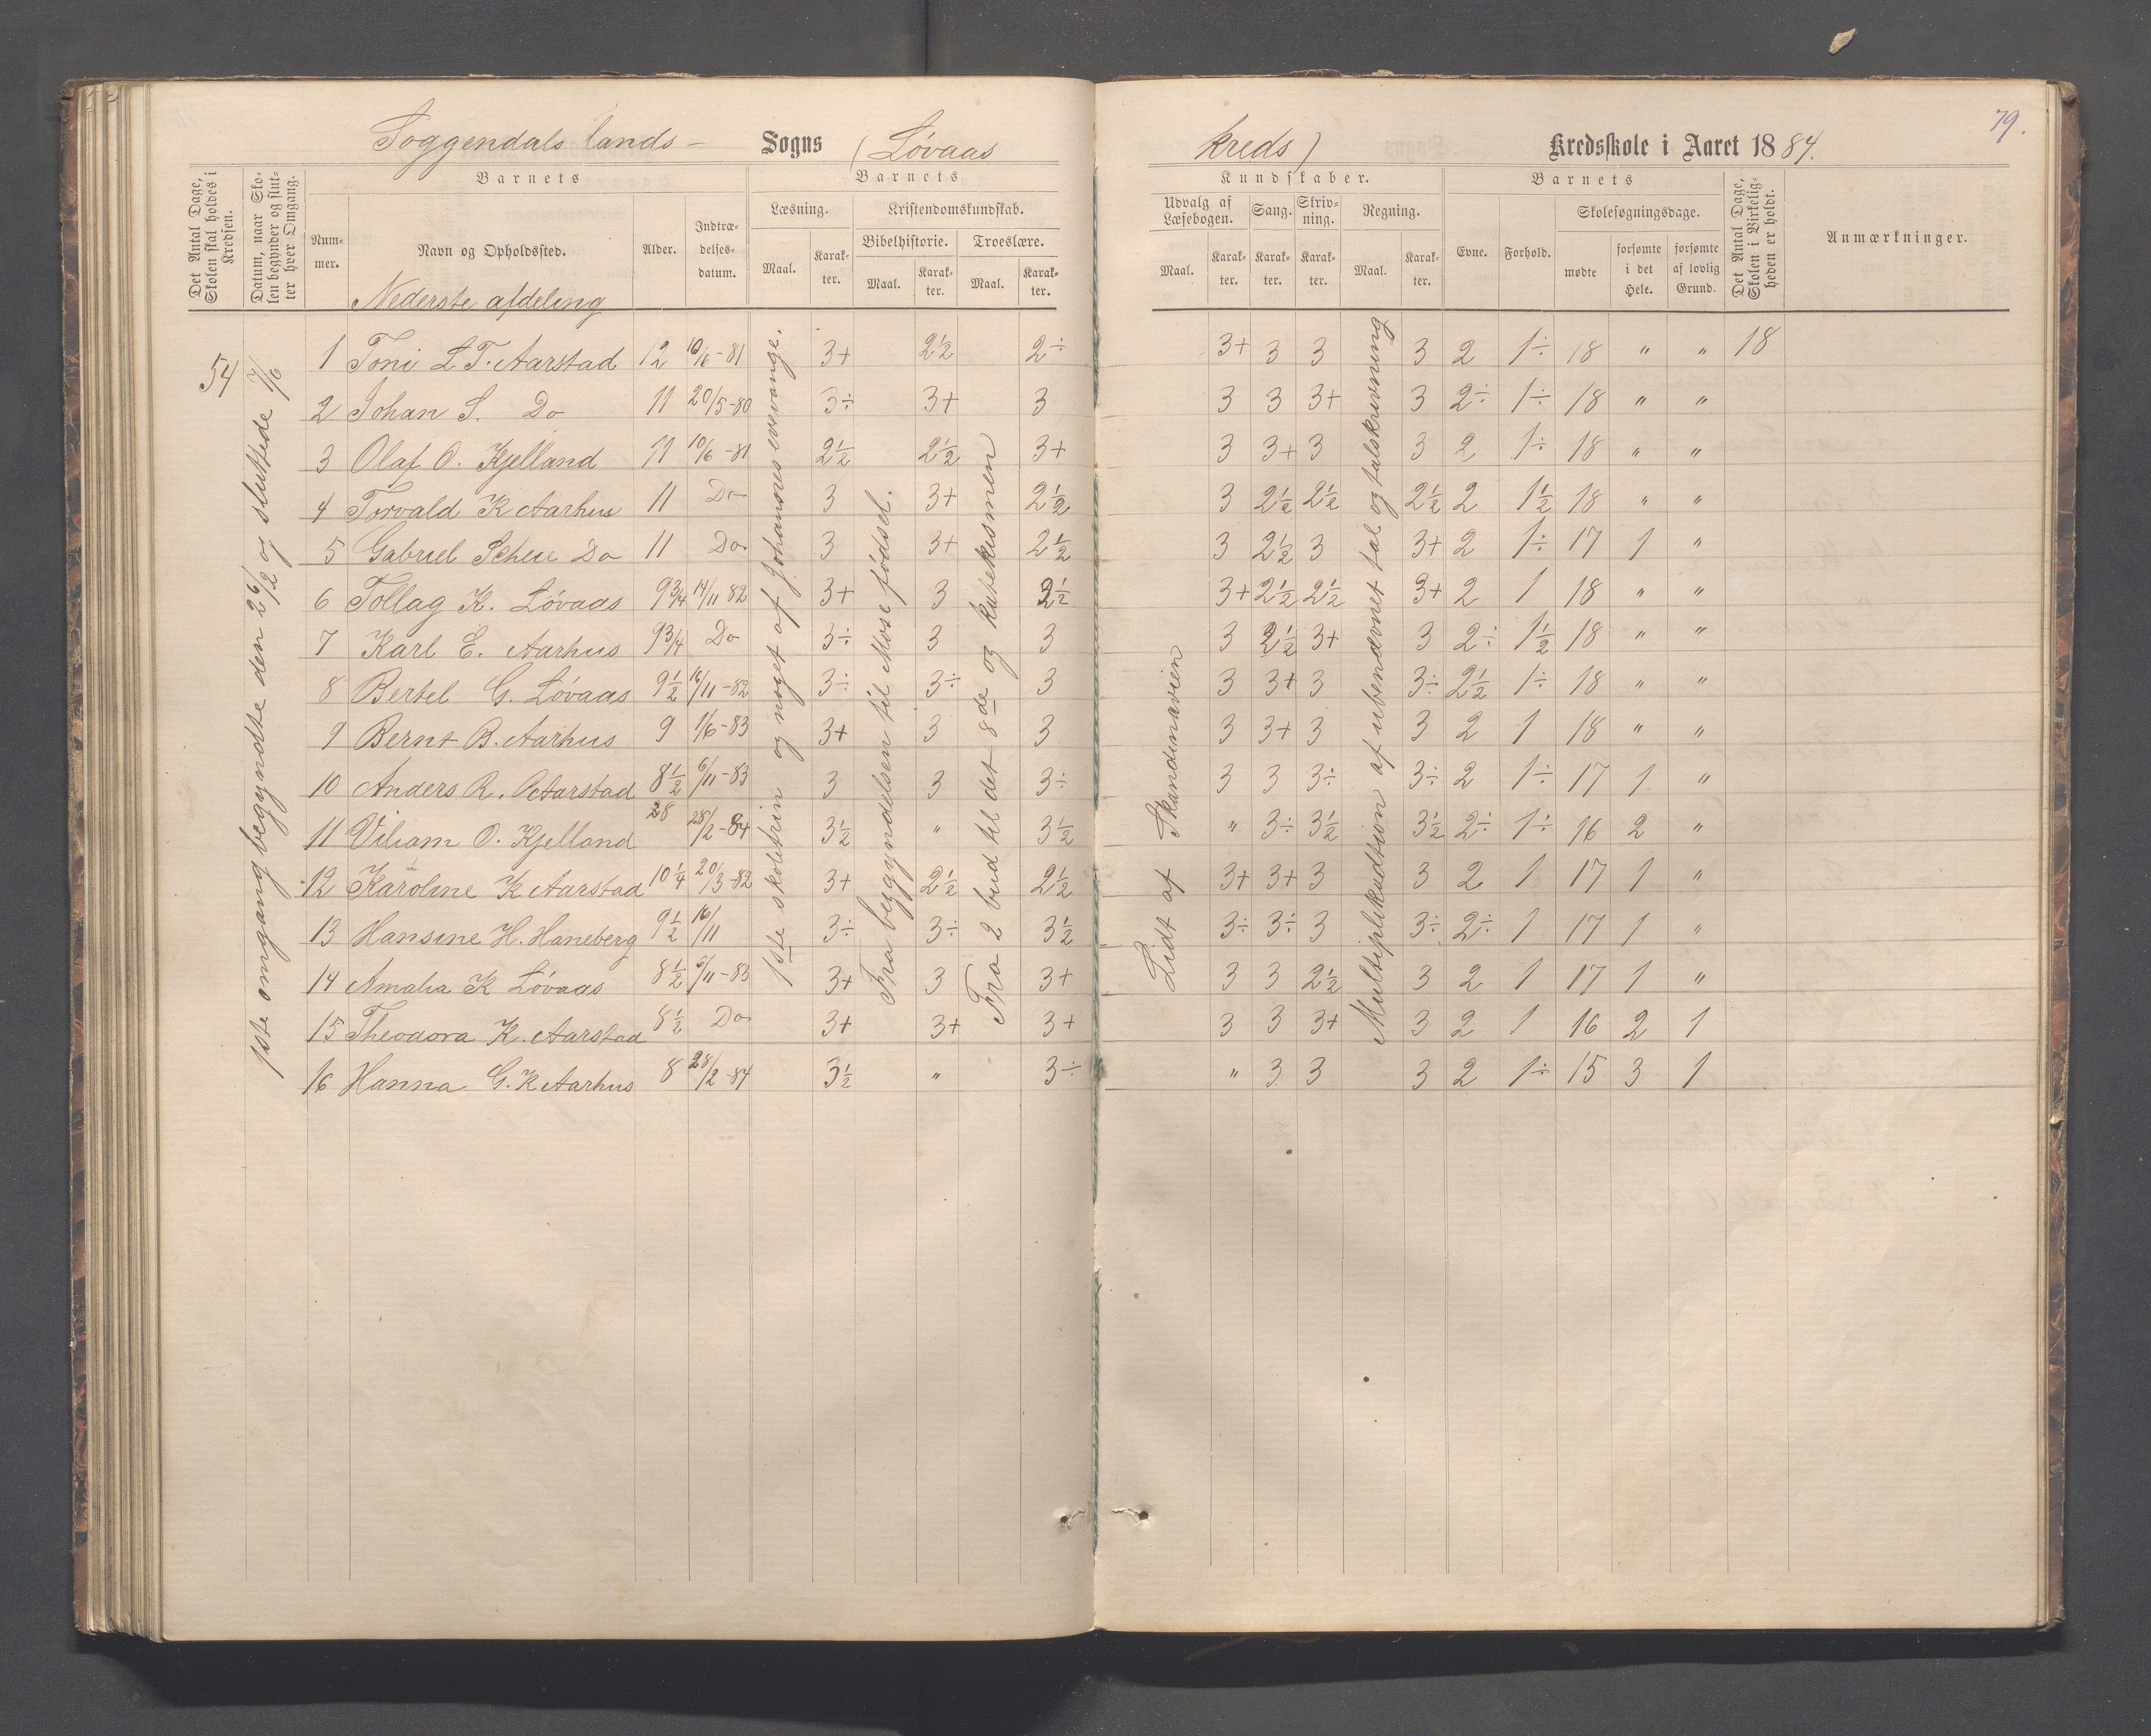 79.
Soggendals lands- Sogns (Løvaas kreds) Kredsskole i Aaret 1884.
Det Antal Dage, Skolen skal holdes i Kredsen.
Datum, naar Skolen begynder og slutter hver Omgang.
Barnets
Nummer.
Navn og Opholdssted.
Alder.
Indtrædelsesdatum.
Barnets
Læsning.
Maal.
Karakter.
Kristendomskundskab.
Bibelhistorie.
Maal.
Karakter.
Troeslære.
Maal.
Karakter.
Kundskaber.
Udvalg af Læsebogen.
Maal.
Karakter.
Sang.
Karakter.
Skrivning.
Karakter.
Regning.
Maal.
Karakter.
Barnets
Evne.
Forhold.
Skolesøgningsdage.
mødte
forsømte i det Hele.
forsømte af lovlig Grund.
Det Antal Dage, Skolen i Virkeligheden er holdt.
Anmærkninger.
Nederste afdeling
54
1ste omgang begyndte den 26/2 og sluttede 7/6
1ste skoletrin og noget af Johannes evvange.
Fra begyndelsen til Mose fødsel.
Fra 2 bud til det 8de og katekismen
Lidt af Skandinavien
Multiplikadtion af ubenævnet tal og talskrivning
1 Toni L T. Aarstad 12 10/6-81 3+ 2½ 2÷ 3+ 3 3 3 2 1÷ 18 " " 18
2 Johan S. Do 11 20/5-80 3÷ 3+ 3 3 3 3+ 3 2÷ 1÷ 18 " "
3 Olaf O. Kjelland 11 10/6-81 2½ 2½ 3+ 3 3+ 3 3 2 1÷ 18 " "
4 Torvald K Aarhus 11 Do 3 3+ 2½ 3 2½ 2½ 2½ 2 1½ 18 " "
5 Gabriel Scheie Do 11 Do 3 3+ 2½ 3 2½ 3 3+ 2 1÷ 17 1 "
6 Tollag K. Løvaas 9¾ 14/11 82 3+ 3 2½ 3+ 2½ 2½ 3+ 2 1 18 " "
7 Karl E. Aarhus 9¾ Do 3÷ 3 3 3 2½ 3+ 3 2÷ 1½ 18 " "
8 Bertel G. Løvaas 9½ 16/11-82 3÷ 3÷ 3 3 3+ 3 3÷ 2½ 1÷ 18 " "
9 Bernt B. Aarhus 9 1/6-83 3+ 3 3 3 3+ 3 3 2 1 18 " "
10 Anders R. Aarstad 8½ 6/11-83 3 3 3÷ 3 3 3÷ 3÷ 2 1÷ 17 1 "
11 Viliam O. Kjelland 28 28/2-84 3½ " 3½ " 3÷ 3½ 3½ 2÷ 1÷ 16 2 "
12 Karoline K Aarstad 10¼ 20/3-82 3+ 2½ 2½ 3+ 3+ 3 3 2 1 17 1 "
13 Hansine H. Haneberg 9½ 16/11 3÷ 3÷ 3½ 3÷ 3÷ 3 3÷ 2÷ 1 17 1 "
14 Amalia K Løvaas 8½ 6/11-83 3+ 3 3+ 3 3 2½ 3 2 1 17 1 "
15 Theodora K. Aarstad 8½ Do 3+ 3+ 3+ 3 3 3+ 3 2 1 16 2 1
16 Hanna G. K Aarhus 8 28/2-84 3½ " 3÷ " 3 3 3 2 1÷ 15 3 1